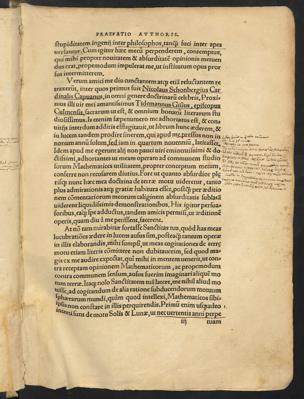 PRAEFATIO AVTHORIS.
stupiditatem ingenij inter philosophos, tanquam fuci inter apes
versantur. Cum igitur haec mecum perpenderem, contemptus,
qui mihi propter nouitatem & absurditatem opinionis metuen
dus erat, propemodum impulerat me, ut institutum opus pror
sus intermitterem.
Verum amici me diu cunctantem atque etiam reluctantem re
traxerunt, inter quos primus fuit Nicolaus Schonbergius Car
dinalis Capuanus, in omni genere doctrinarum celebris, Proxi
mus illi uir mei amantissimus Tidemannus Gisius, episcopus
Culmensis, sacrarum ut est, & omnium bonarum literarum stu
diosissimus. Is etenim saepenumero me adhortatus est, & conui
tijs interdum additis efflagitauit, ut librum hunc aederem, &
in lucem tandem prodire sinerem, qui apud me pressus non in
nonum annum solum, sed iam in quartum nouennium, latitasset.
Idem apud me egerunt alij non pauci uiri eminentissimi & do
ctissimi, adhortantes ut meam operam ad communem studio
sorum Mathematices utilitatem, propter conceptum metum,
conferre non recusarem diutius. Fore ut quanto absurdior ple
risque nunc haec mea doctrina de terrae motu uideretur, tanto
plus admirationis atque gratiae habitura esset, postquam per aeditio
nem commentariorum meorum caliginem absurditatis sublatam
uiderent liquidissimis demonstrationibus. His igitur persua
soribus, eaque spe adductus, tandem amicis permisi, ut aeditionem
operis, quam diu a me petissent, facerent.
At non tam mirabitur fortasse Sanctitas tua, quod has meas
lucubrationes aedere in lucem ausus sim, posteaquam tantum operae
in illis elaborandis, mihi sumpsi, ut meas cogitationes de terrae
motu etiam literis committere non dubitauerim, sed quod ma
gis ex me audire expectat, qui mihi in mentem uenerit, ut con
tra receptam opinionem Mathematicorum, ac propemodum
contra communem sensum, ausus fuerim imaginari aliquem mo
tum terrae. Itaque nolo Sanctitatem tuam latere, me nihil aliud mo
uisse, ad cogitandum de alia ratione subducendorum motuum
sphaerarum mundi, quam quod intellexi, Mathematicos sibi
ipsis non constare in illis perquirendis. Primum enim usqueadeo
incerti sunt de motu Solis & Lunae, ut nec uertentis anni perpe
iij
tuam